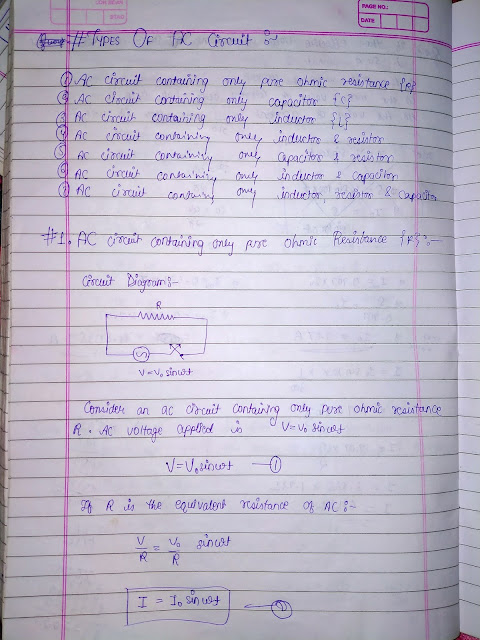 PAGE NO.:
DATE
# TYPES OF AC Circuit :-
① AC circuit containing only pure ohmic resistance {R}
② AC circuit containing only capacitor {C}
③ AC circuit containing only inductor {L}
④ AC circuit containing only inductor & resistor
⑤ AC circuit containing only capacitor & resistor
⑥ AC circuit containing only inductor & capacitor
⑦ AC circuit containing only inductor, resistor & capacitor
#1. AC circuit containing only pure ohmic Resistance {R} :-
Circuit Diagram :-
R
V = V₀ sinωt
Consider an ac circuit containing only pure ohmic resistance
R. AC voltage applied is V = V₀ sinωt
V = V₀ sinωt —①
If R is the equivalent resistance of AC :-
V/R = V₀/R sinωt
I = I₀ sinωt —②